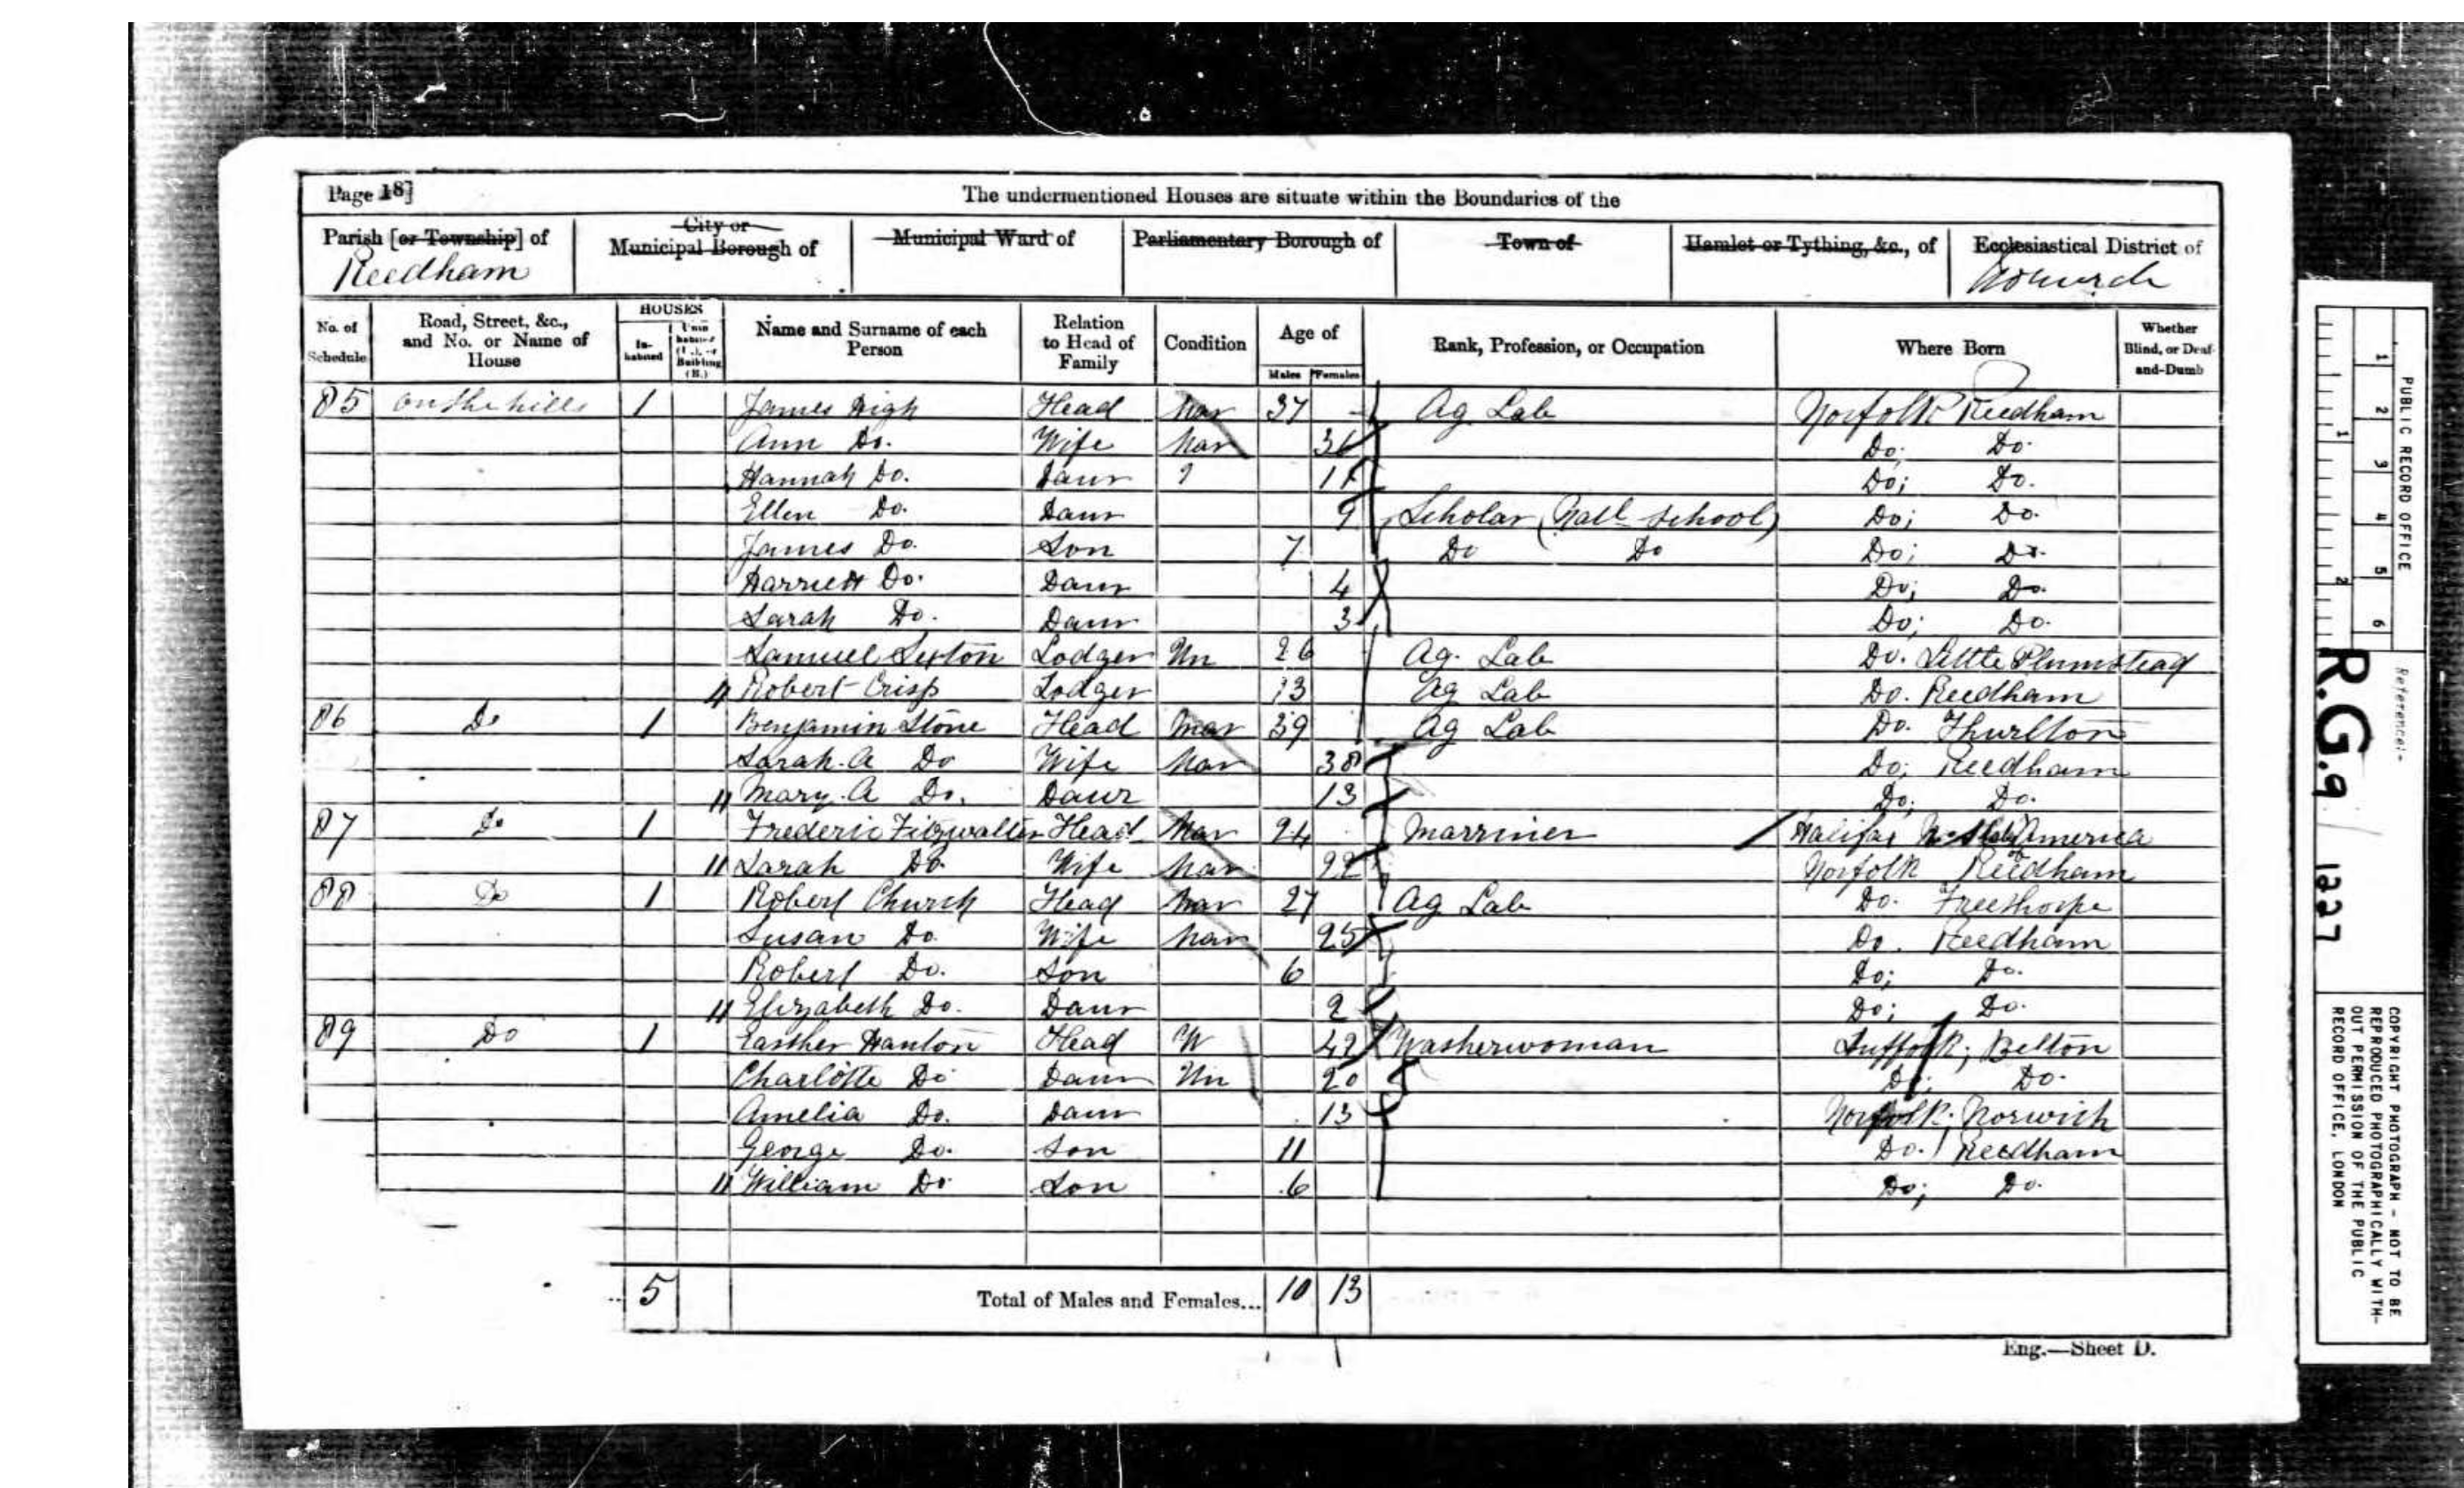 Page 18]
The undermentioned Houses are situate within the Boundaries of the
Parish [or Township] of
Reedham
City or
Municipal Borough of
Municipal Ward of
Parliamentary Borough of
Town of
Hamlet or Tything, &c., of
Ecclesiastical District of
No. of Schedule
Road, Street, &c., and No. or Name of House
HOUSES
In-habited
Unin-habited (U.), or Building (B.)
Name and Surname of each Person
Relation to Head of Family
Condition
Age of
Males Females
Rank, Profession, or Occupation
Where Born
Whether Blind, or Deaf-and-Dumb
85 on the hills 1 James High Head Mar 37 Ag Lab Norfolk Reedham
Ann Do. Wife Mar 36 Do; Do.
Hannah Do. Daur Do; Do.
Ellen Do. Daur 9 Scholar (Natl School) Do; Do.
James Do. Son 7 Do Do Do; Do.
Harriett Do. Daur 4 Do; Do.
Sarah Do. Daur 3 Do; Do.
Samuel Sexton Lodger Un 26 Ag. Lab Do. Little Plumstead
Robert Crisp Lodger 13 Ag Lab Do. Reedham
86 Do 1 Benjamin Stone Head Mar 39 Ag Lab Do. Thurlton
Sarah A Do Wife Mar 38 Do; Reedham
Mary A Do. Daur 13 Do; Do.
87 Do 1 Frederic Fitzwalter Head Mar 24 Marriner Halifax America
Sarah Do. Wife Mar 22 Norfolk Reedham
88 Do 1 Robert Church Head Mar 27 Ag Lab Do. Freethorpe
Susan Do Wife Mar 25 Do. Reedham
Robert Do. Son 6 Do; Do.
Elizabeth Do. Daur 2 Do; Do.
89 Do 1 Easther Hanton Head W 42 Washerwoman Suffolk; Belton
Charlotte Do Daur Un 20 Do; Do.
Amelia Do. Daur 13 Norfolk; Norwich
George Do. Son 11 Do. Reedham
William Do Son 6 Do; Do.
5 Total of Males and Females... 10 13
Eng.—Sheet D.
1 2 3 4 5 6
1 2
PUBLIC RECORD OFFICE
Reference:-
R.G. 9 1227
COPYRIGHT PHOTOGRAPH - NOT TO BE
REPRODUCED PHOTOGRAPHICALLY WITH-
OUT PERMISSION OF THE PUBLIC
RECORD OFFICE, LONDON